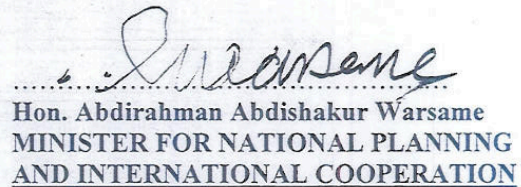 Warsame
Hon. Abdirahman Abdishakur Warsame
MINISTER FOR NATIONAL PLANNING
AND INTERNATIONAL COOPERATION